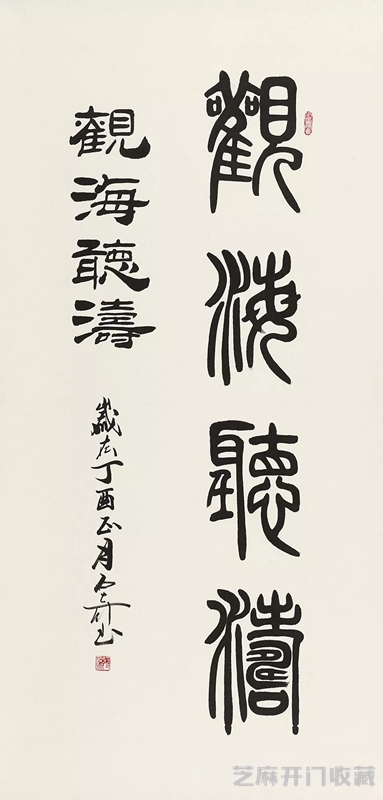 觀海聽濤
觀海聽濤 歲在丁酉正月
芝麻开门收藏